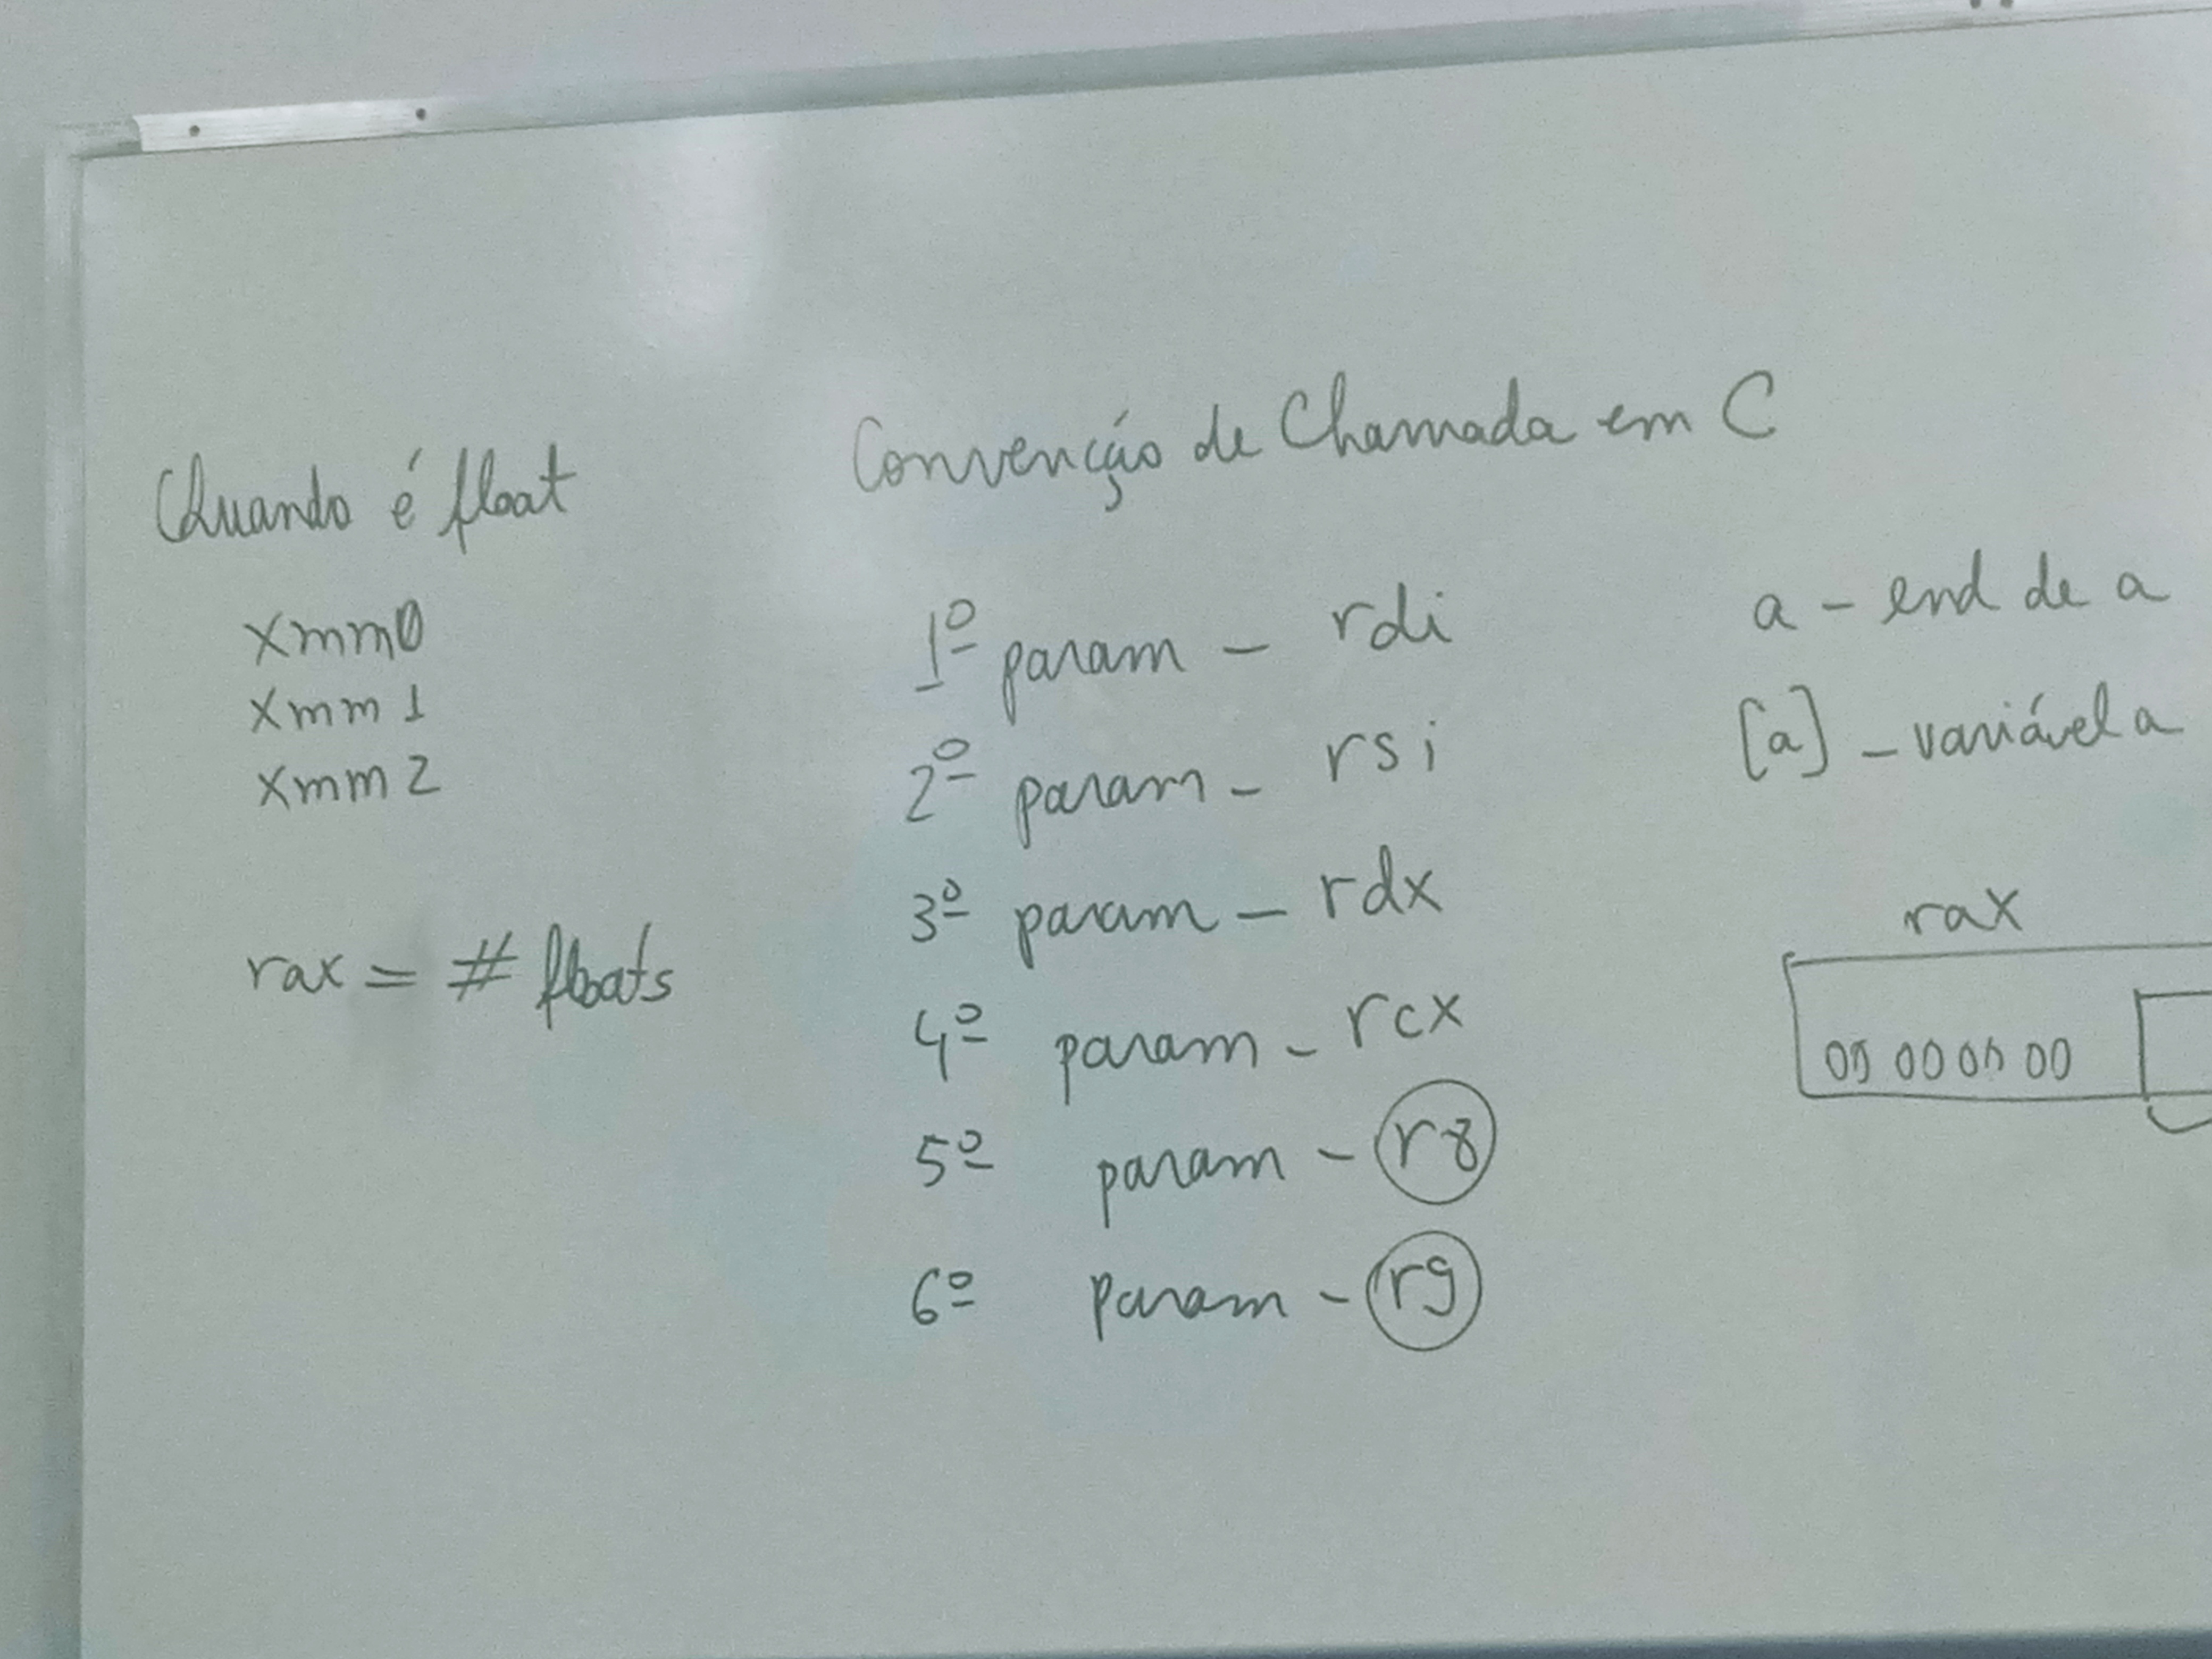 Quando é float
xmm0
xmm1
xmm2
rax = # floats
Convenção de Chamada em C
1º param - rdi
2º param - rsi
3º param - rdx
4º param - rcx
5º param - r8
6º param - r9
a - end de a
[a] - variável a
rax
00 00 00 00